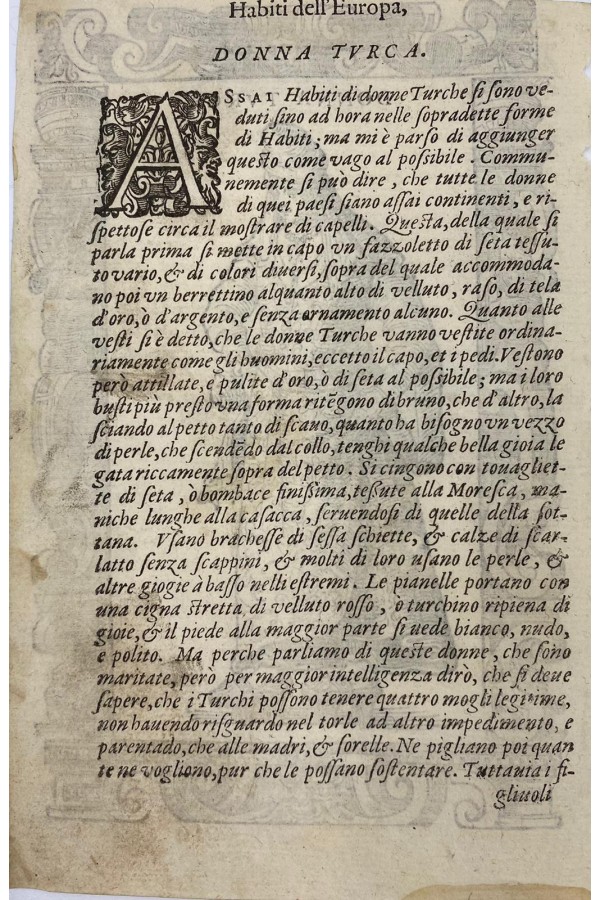 Habiti dell'Europa,
DONNA TVRCA.
ASSAI Habiti di donne Turche ſi ſono ve-
duti ſino ad hora nelle ſopradette forme
di Habiti; ma mi è parſo di aggiunger
queſto come vago al poſſibile. Commu-
nemente ſi può dire, che tutte le donne
di quei paeſi ſiano aſſai continenti, e ri-
ſpettoſe circa il moſtrare di capelli. Queſta, della quale ſi
parla prima ſi mette in capo vn fazzoletto di ſeta teſſu-
to vario, & di colori diuerſi, ſopra del quale accommoda-
no poi vn berrettino alquanto alto di velluto, raſo, di tela
d'oro, ò d'argento, e ſenza ornamento alcuno. Quanto alle
veſti ſi è detto, che le donne Turche vanno veſtite ordina-
riamente come gli huomini, eccetto il capo, et i pedi. Veſtono
però attillate, e pulite d'oro, ò di ſeta al poſſibile; ma i loro
buſti più preſto vna forma ritēgono di bruno, che d'altro, la
ſciando al petto tanto di ſcauo, quanto ha biſogno vn vezzo
di perle, che ſcendēdo dal collo, tenghi qualche bella gioia le
gata riccamente ſopra del petto. Si cingono con touagliet-
te di ſeta, ò bombace finiſſima, teſſute alla Moreſca, ma-
niche lunghe alla caſacca, ſeruendoſi di quelle della ſot-
tana. Vſano bracheſſe di ſeſſa ſchiette, & calze di ſcar-
latto ſenza ſcappini, & molti di loro uſano le perle, &
altre giogie à baſſo nelli eſtremi. Le pianelle portano con
una cigna ſtretta di velluto roſſo, o turchino ripiena di
gioie, & il piede alla maggior parte ſi uede bianco, nudo,
e polito. Ma perche parliamo di queſte donne, che ſono
maritate, però per maggior intelligenza dirò, che ſi deue
ſapere, che i Turchi poſſono tenere quattro mogli legitime,
non hauendo riſguardo nel torle ad altro impedimento, e
parentado, che alle madri, & ſorelle. Ne pigliano poi quan
te ne vogliono, pur che le poſſano ſoſtentare. Tuttauia i fi-
gliuoli